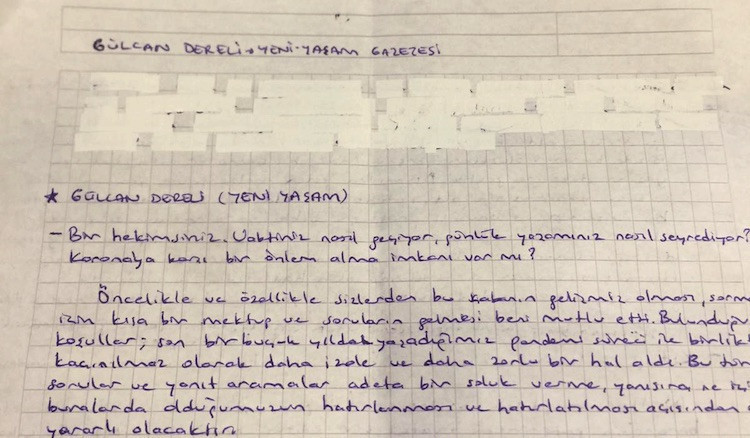 GÜLCAN DERELİ → YENİ YAŞAM GAZEZESİ
★ GÜLCAN DERELİ (YENİ YAŞAM)
- Bir hekimsiniz. Vaktiniz nasıl geçiyor, günlük yaşamınız nasıl seyrediyor?
Koronaya karşı bir önlem alma imkanı var mı?
Öncelikle ve özellikle sizlerden bu çabanın gelmiş olması,
kısa bir mektup ve soruların gelmesi beni mutlu etti. Bulunduğu
koşullar; son bir buçuk yıldan yaşadığımız pandemi süreci ile birlik
kaçınılmaz olarak daha izole ve daha zorlu bir hal aldı. Bu tür
sorular ve yanıt aramalar adeta bir soluk verme, yanısıra ne
buralarda olduğumuzun hatırlanması ve hatırlatılması açısından
yararlı olacaktır.